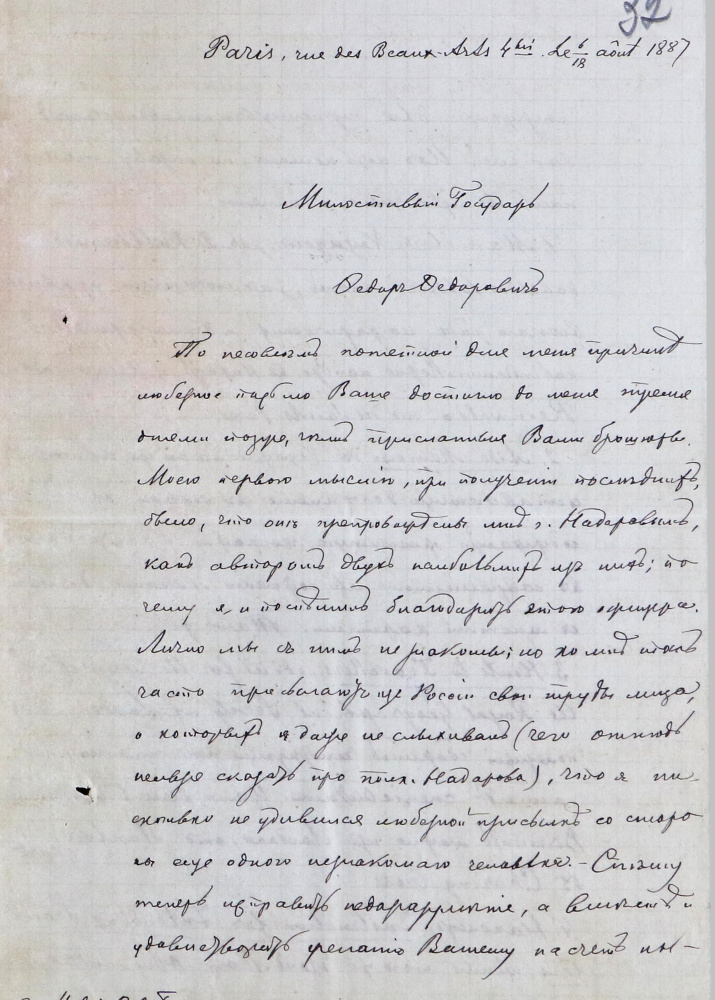 32
Paris, rue des Beaux-Arts 4 bis. Le 6/18 août 1887
Милостивый Государь
Федоръ Федоровичъ
По несовсѣмъ понятной для меня причинѣ
любезное письмо Ваше достигло до меня тремя
днями позже, чѣмъ присланныя Вами брошюры.
Моею первою мыслію, при полученіи послѣднихъ,
было, что онѣ препровождены мнѣ г. Надаровымъ,
какъ авторомъ двухъ наибольшихъ изъ нихъ; по
чему я и поспѣшилъ благодарить этого офицера.
Лично мы съ нимъ незнакомы; но ко мнѣ такъ
часто присылаютъ изъ Россіи свои труды лица,
о которыхъ я даже не слыхивалъ (чего отнюдь
нельзя сказать про полк. Надарова), что я ни-
сколько не удивился любезной присылкѣ со сторо
ны еще одного незнакомаго человѣка. – Спѣшу
теперь исправить недоразумѣніе, а вмѣстѣ и
удовлетворить желанію Вашему насчетъ